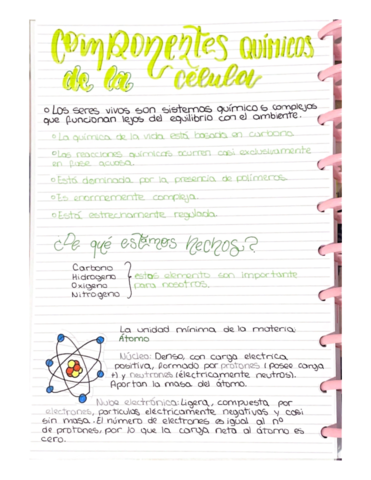 Componentes químicos
de la célula
Los seres vivos son sistemas químicos complejos
que funcionan lejos del equilibrio con el ambiente.
La química de la vida está basada en carbono.
Las reacciones químicas ocurren casi exclusivamente
en fase acuosa.
Está dominada por la presencia de polímeros.
Es enormemente compleja.
Está estrechamente regulada.
¿De qué estamos hechos?
Carbono
Hidrogeno
Oxigeno
Nitrógeno
estos elemento son importante
para nosotros.
La unidad mínima de la materia:
Átomo
Núcleo: Denso, con carga electrica
positiva, formado por protones (posee carga
+) y neutrones (eléctricamente neutros).
Aportan la masa del átomo.
Nube electrónica: Ligera, compuesta por
electrones, partículas eléctricamente negativas y casi
sin masa. El número de electrones es igual al nº
de protones, por lo que la carga neta al átomo es
cero.